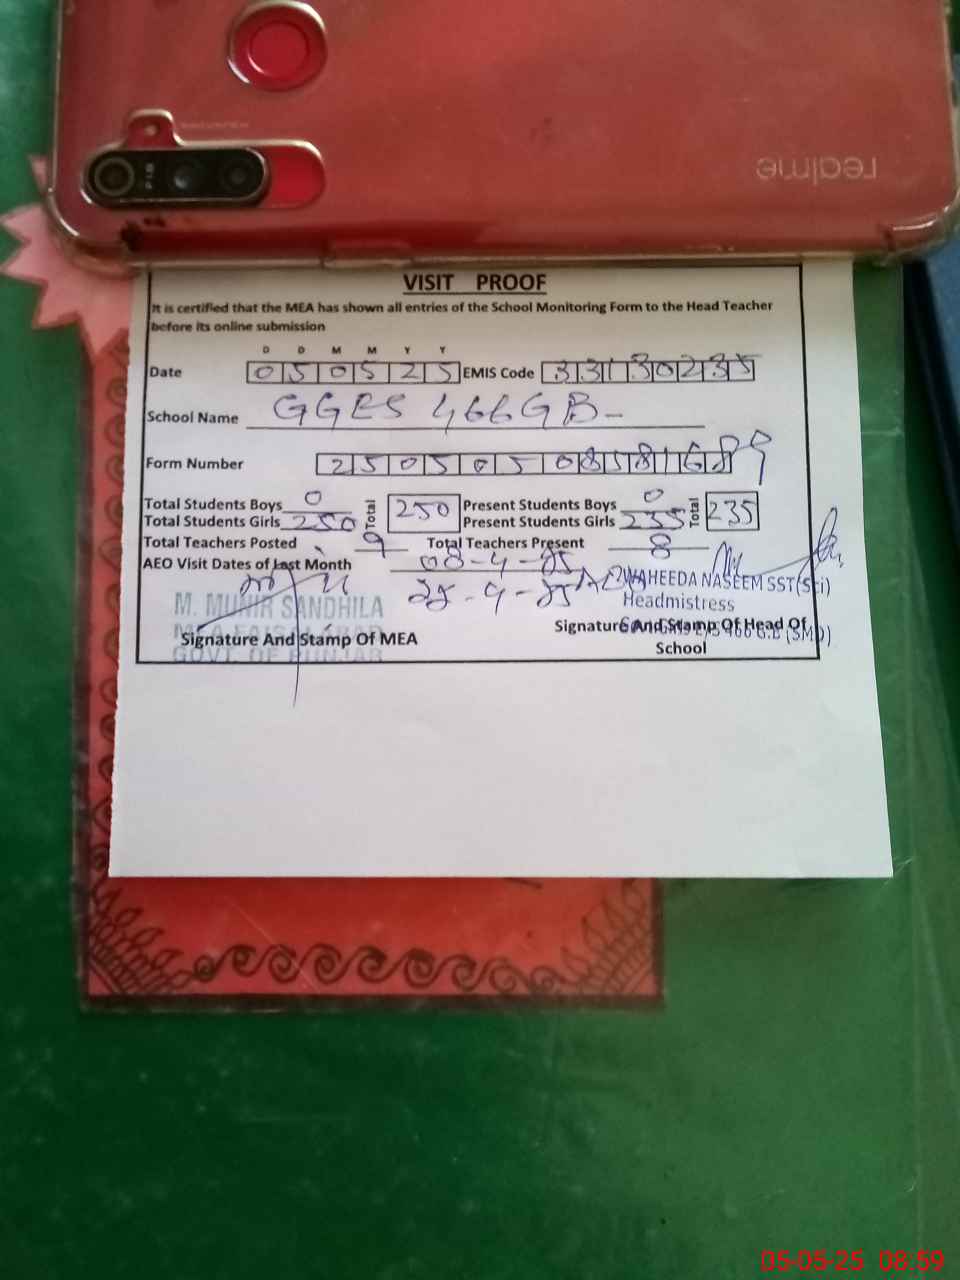 realme
VISIT PROOF
It is certified that the MEA has shown all entries of the School Monitoring Form to the Head Teacher
before its online submission
D D M M Y Y
Date 0 5 0 5 2 5 EMIS Code 3 3 1 3 0 2 3 5
School Name GGES 466 GB
Form Number 2 5 0 5 0 5 0 8 5 8 1 6 8 9
Total Students Boys 0 Total 250 Present Students Boys 0 Total 235
Total Students Girls 250 Present Students Girls 235
Total Teachers Posted 9 Total Teachers Present 8
AEO Visit Dates of Last Month 08-4-25
25-4-25
WAHEEDA NASEEM SST(Sci)
Headmistress
M. MUNIR SANDHILA
MEA FAISALABAD
GOVT. OF PUNJAB
Signature And Stamp Of MEA
Signature And Stamp Of Head Of
School
466 G.B (SMD)
05-05-25 08:59